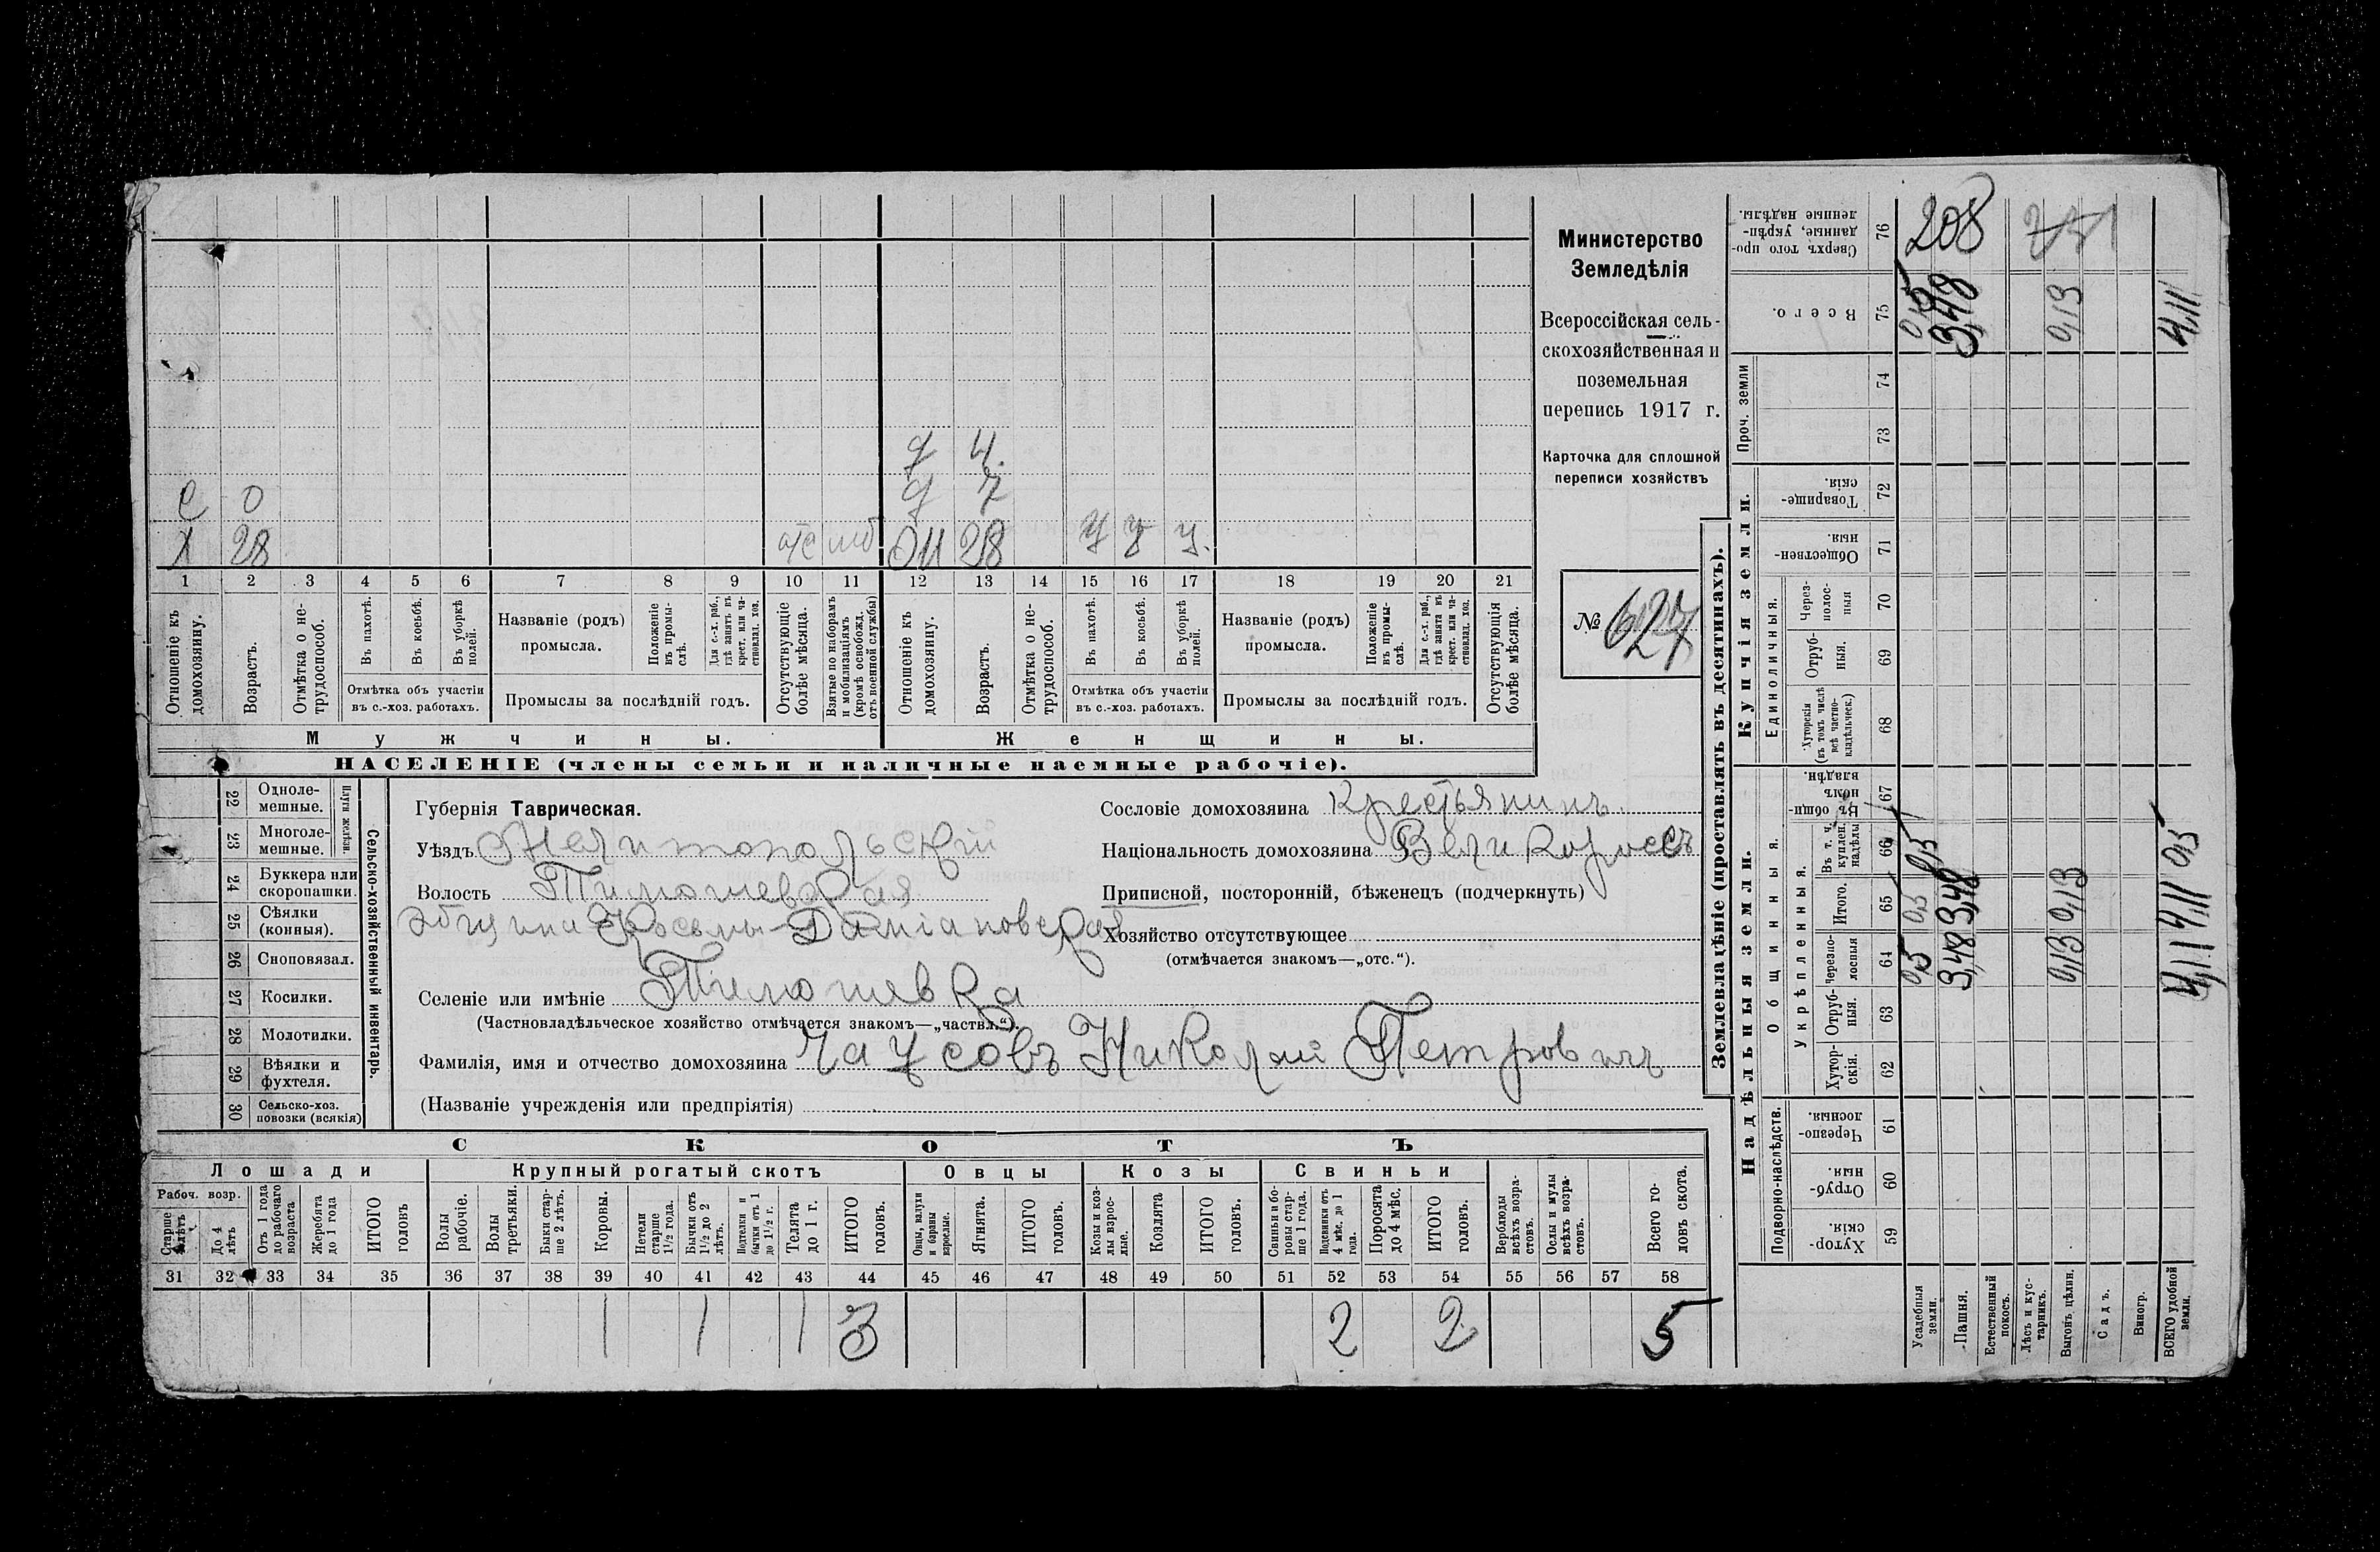 Министерство
Земледѣлія
Всероссійская сель-
скохозяйственная и
поземельная
перепись 1917 г.
Карточка для сплошной
переписи хозяйствъ
№ 627
д 4.
С 0 д 7
Х 28 отс моб ОН 28 у у у.
1 2 3 4 5 6 7 8 9 10 11 12 13 14 15 16 17 18 19 20 21
Отношеніе къ домохозяину.
Возрастъ.
Отмѣтка о не-трудоспособ.
Въ пахотѣ.
Въ косьбѣ.
Въ уборкѣ полей.
Отмѣтка объ участіи
въ с.-хоз. работахъ.
Названіе (родъ)
промысла.
Положеніе въ промы-слѣ.
Для с.-х. раб., гдѣ занятъ въ крест. или ча-стновлад. хоз.
Промыслы за послѣдній годъ.
Отсутствующіе болѣе мѣсяца.
Взятые по наборамъ и мобилизаціямъ (кромѣ освобожд. отъ военной службы)
Отношеніе къ домохозяину.
Возрастъ.
Отмѣтка о не-трудоспособ.
Въ пахотѣ.
Въ косьбѣ.
Въ уборкѣ полей.
Отмѣтка объ участіи
въ с.-хоз. работахъ.
Названіе (родъ)
промысла.
Положеніе въ промы-слѣ.
Для с.-х. раб., гдѣ занята въ крест. или ча-стновлад. хоз.
Промыслы за послѣдній годъ.
Отсутствующія болѣе мѣсяца.
Мужчины. Женщины.
НАСЕЛЕНІЕ (члены семьи и наличные наемные рабочіе).
Сельско-хозяйственный инвентарь.
Плуги желѣзн.
22 Одноле-
мешные.
23 Многоле-
мешные.
24 Буккера или
скоропашки.
25 Сѣялки
(конныя).
26 Сноповязал.
27 Косилки.
28 Молотилки.
29 Вѣялки и
фухтеля.
30 Сельско-хоз.
повозки (всякія)
Губернія Таврическая.
Уѣздъ Мелитопольскій
Волость Тимошевская
Община Косьмо-Даміановская
Селеніе или имѣніе Тимошевка
(Частновладѣльческое хозяйство отмѣчается знакомъ—„частвл.“).
Фамилія, имя и отчество домохозяина Чаусовъ Николай Петровичъ
(Названіе учрежденія или предпріятія)
Сословіе домохозяина Крестьянинъ.
Національность домохозяина Великороссъ
Приписной, посторонній, бѣженецъ (подчеркнуть)
Хозяйство отсутствующее
(отмѣчается знакомъ—„отс.“).
СКОТЪ
Лошади Крупный рогатый скотъ Овцы Козы Свиньи
Рабоч. возр.
Старше 4 лѣтъ
До 4 лѣтъ
Отъ 1 года до рабочаго возраста
Жеребята до 1 года
ИТОГО головъ
Волы рабочіе.
Волы третьяки.
Быки стар-ше 2 лѣтъ.
Коровы.
Нетели старше 1½ года.
Бычки отъ 1½ до 2 лѣтъ.
Подтелки и бычки отъ 1 до 1½ г.
Телята до 1 г.
ИТОГО головъ.
Овцы, валухи и бараны взрослые.
Ягнята.
ИТОГО головъ.
Козы и коз-лы взрос-лые.
Козлята
ИТОГО головъ.
Свиньи и бо-ровы стар-ше 1 года.
Подсвинки отъ 4 мѣс. до 1 года.
Поросята до 4 мѣс.
ИТОГО головъ.
Верблюды всѣхъ возра-стовъ.
Ослы и мулы всѣхъ возра-стовъ.
Всего го-ловъ скота.
31 32 33 34 35 36 37 38 39 40 41 42 43 44 45 46 47 48 49 50 51 52 53 54 55 56 57 58
1 1 1 3 2 2 5
Землевладѣніе (проставлять въ десятинахъ).
Надѣльныя земли. Купчія земли.
Подворно-наслѣдств.
Общинныя.
Укрѣпленныя.
Единоличныя.
Проч. земли
Сверхъ того про-данные, укрѣп-ленные надѣлы. 76 208
Всего. 75 0,5 3,48 0,13 4,11
74
73
Товарище-скія. 72
Обществен-ныя. 71
Через-полос-ныя 70
Отруб-ныя. 69
Хуторскія (въ томъ числѣ всѣ частно-владѣльческ.) 68
Въ общи-номъ владѣн. 67
Въ т. ч. куплен. надѣлы 66 0,5 0,5
Итого. 65 0,5 3,48 0,13 4,11
Черезпо-лосныя 64 0,5 3,48 0,13 4,11
Отруб-ныя. 63
Хутор-скія. 62
Черезпо-лосныя. 61
Отруб-ныя. 60
Хутор-скія. 59
Усадебныя земли.
Пашня.
Естественный покосъ.
Лѣсъ и кус-тарникъ.
Выгонъ цѣлин.
Садъ.
Виногр.
ВСЕГО удобной земли.